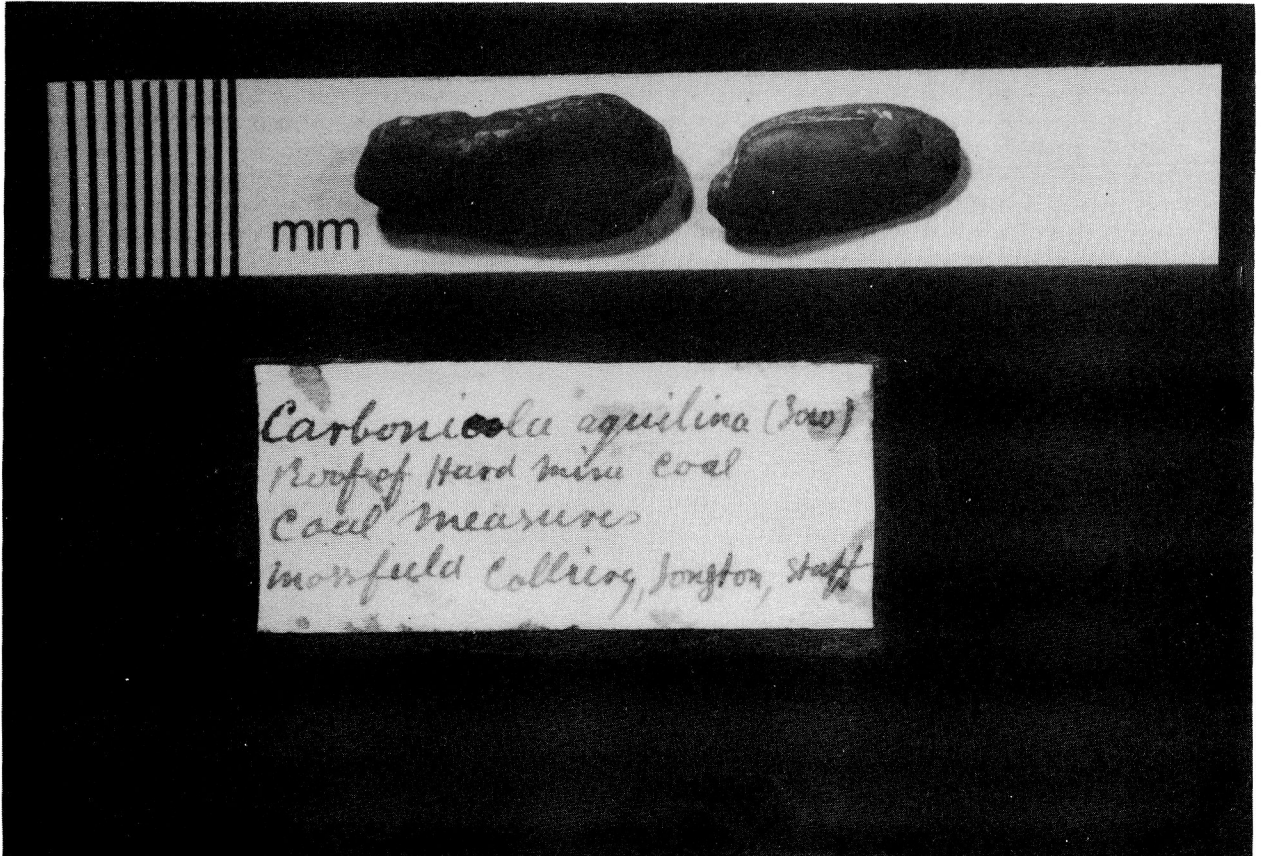 mm
Carbonicola aquilina (Sow)
Roof of Hard mine Coal
Coal Measures
Mossfield Colliery, Longton, Staff